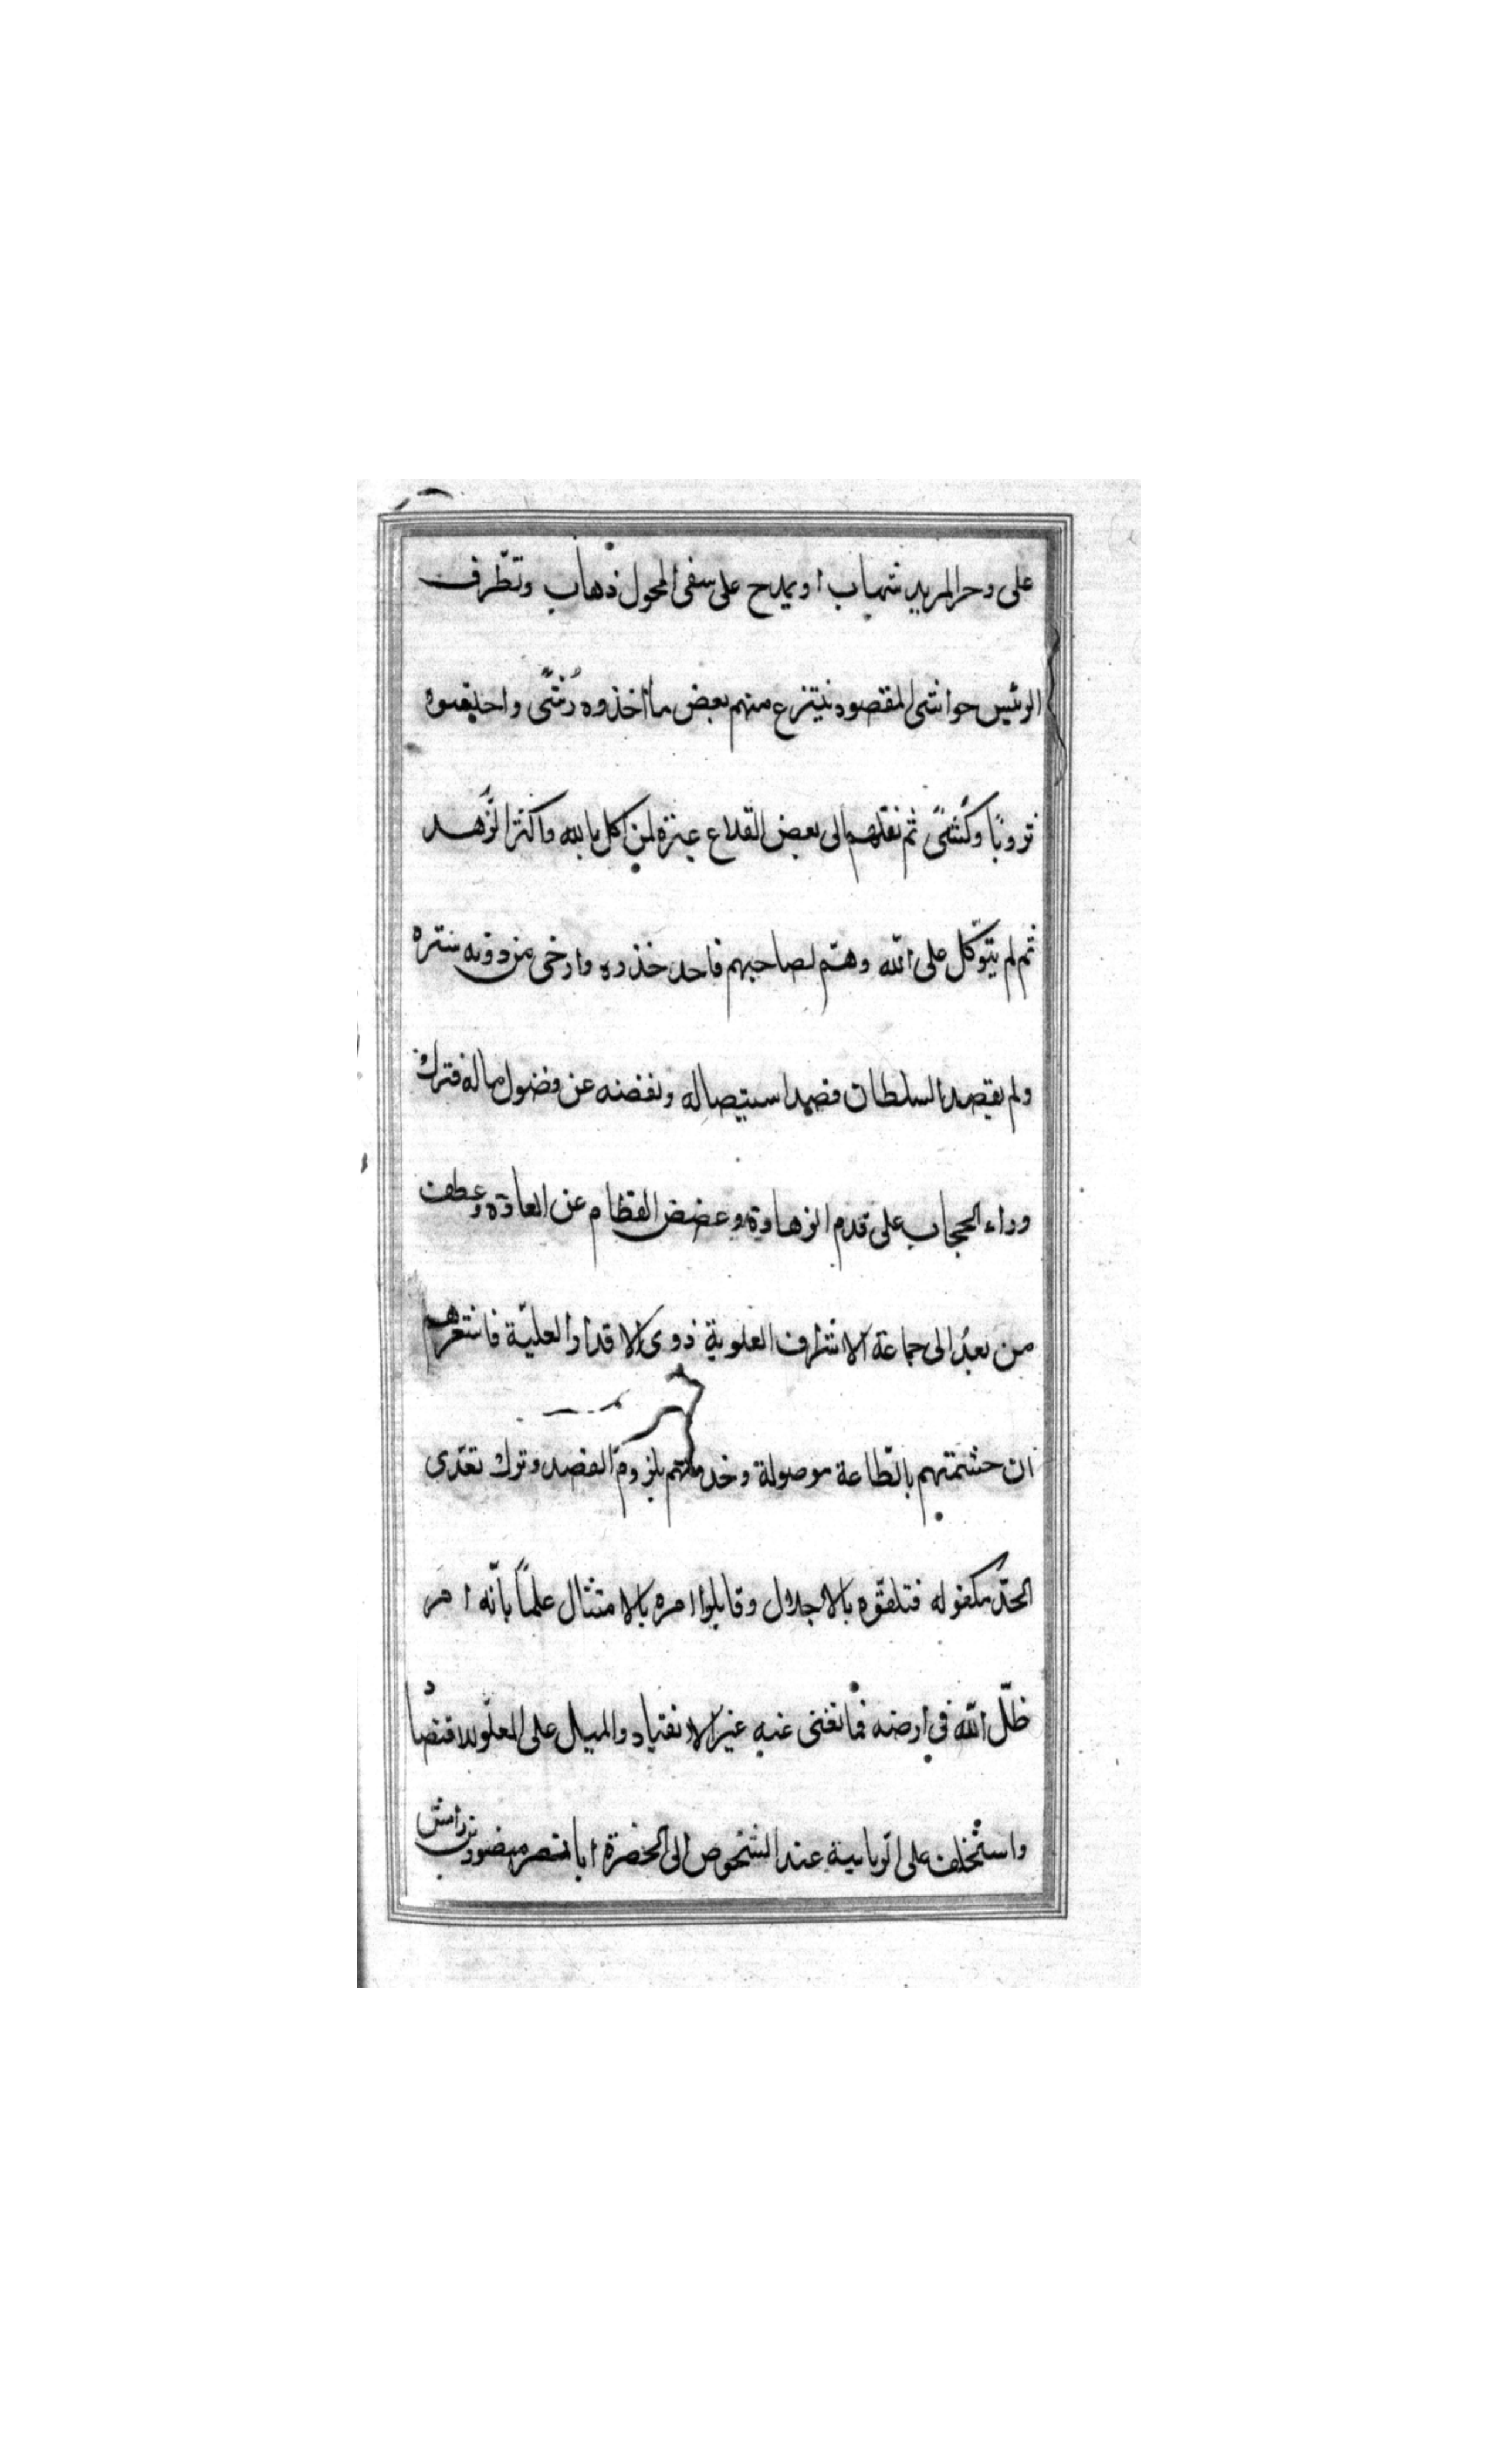 على وحر المريد شهاب او يمدح على سفى المحول ذهاب وتطّرف
الرئيس حواشى المقصود ينتزع منهم بعض ما اخذوه رُشًى واحتقبوه
ثروبًا وكُشًى ثم نقلهم الى بعض القلاع عبرة لمن اكل بايبه واكثر الزّهد
ثم لم يتوّكل على الله وهتم لصاحبهم فاحد خذده وارخى من دونه ستره
ولم يقصد السلطان فصد استيصاله ونفضه عن فضول ماله فترك
وراء الحجاب على قدم الزهادة وعضض الفطام عن العادة وعطف
من بعدُ الى جماعة الاشراف العلوية ذوى الاقدار العليّة فاشعرهم
ان حشمتهم بالطّاعة موصولة وخدمتهم بلزوم القصد وترك تعدّى
الحدّ مكفوله فتلقّوه بالاجلال وقابلوا امره بالامتثال علمًا بانّه امر
ظلّ الله في ارضه فما تغنى عنه غير الانقياد والميل على الغلّو للاقتصا د
واستخلف على الرياسة عند الشخوص الى الحضرة ابا نصر منصور بن رامش